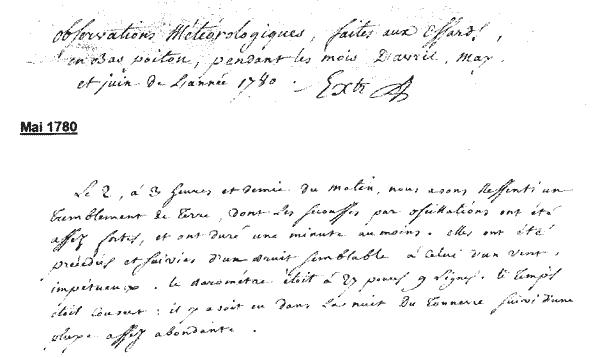 observations Météorologiques, faites aux Essards,
en Bas poitou, pendant les mois D'avril, may
et juin de L'année 1780. Ext
Mai 1780
Le 2, à 3 heures et demie du matin, nous avons Ressenti un
tremblement de Terre, dont Les secousses par oscillations ont été
assez fortes, et ont duré une minute au moins. elles ont été
précédés et suivies d'un bruit semblable à Celui d'un vent
impétueux. le Baromètre étoit à 27 pouces 9 Lignes. le Temps
étoit Couvert : il y avoit eu dans La nuit Du Tonnerre suivi d'une
pluye assez abondante.